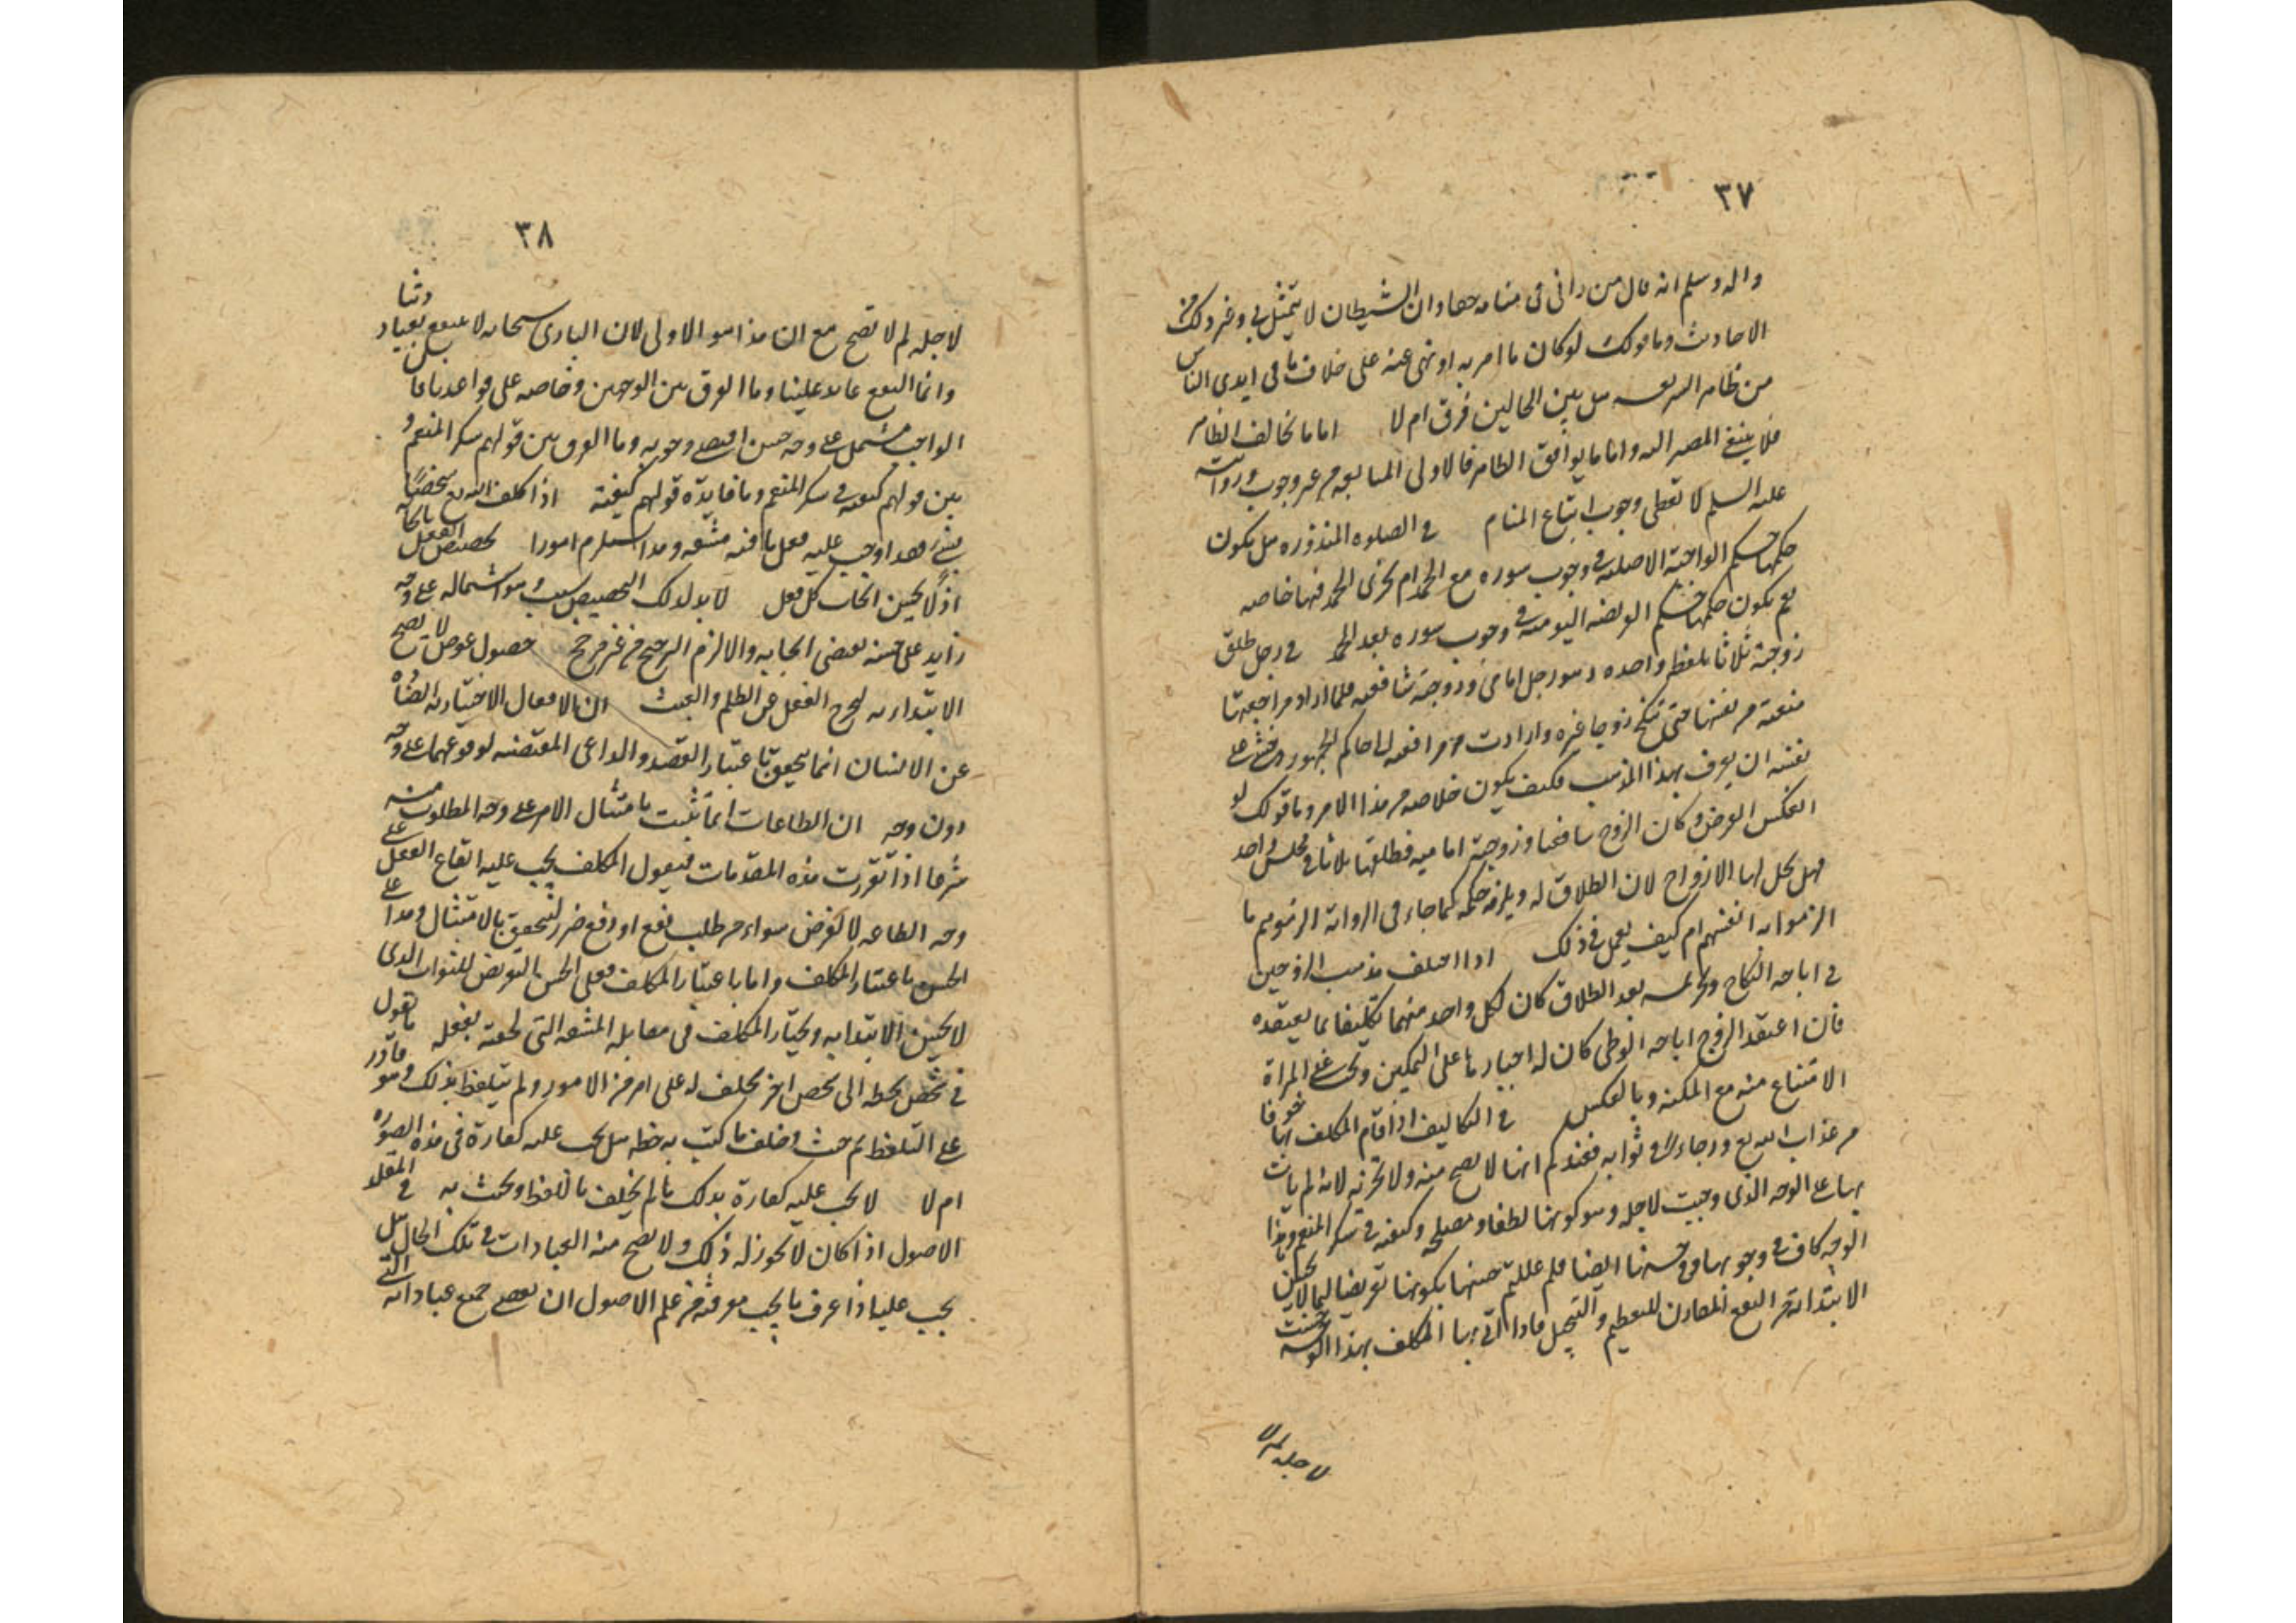 ٣٧
واله وسلم انه قال من رانى فى منامه حقا وان الشيطان لا يتمثل بى وغير ذلك من
الاحاديث وما قولك لو كان ما امر به او نهى عنه على خلاف ما فى ايدى الناس
من ظاهر الشريعه هل بين الحالين فرق ام لا اما ما يخالف الظاهر
فلا ينبغى المصير اليه واما ما يوافق الظاهر فالاولى المتابعه من غير وجوب ورؤيته
عليه السلم لا تعطى وجوب اتباع المنام فى الصلوه المنذوره هل يكون
حكمها حكم الواجبة الاصليه فى وجوب سوره مع الحمد ام تجزى الحمد فيها خاصه
نعم يكون حكمها حكم الفريضه اليوميه فى وجوب سوره بعد الحمد فى رجل طلق
زوجته ثلاثا بلفظ واحده وهو رجل امامى وزوجته شافعيه فلما اراد مراجعتها
منعته من نفسها حتى تنكح زوجا غيره وارادت مرافعه الى حاكم الجمهور وخشى على
نفسه ان يعرف بهذا المذهب فكيف يكون خلاصه من هذا الامر وما قولك لو
انعكس الفرض وكان الزوج شافعيا وزوجته اماميه فطلقها ثلاثا فى مجلس واحد
فهل يحل لها الازواج لان الطلاق له ويلزمه حكمه كما جاء فى الرواية الزموهم ما
الزموا به انفسهم ام كيف يعمل فى ذلك اذا اختلف مذهب الزوجين
فى اباحه النكاح وتحريمه بعد الطلاق كان لكل واحد منهما تكليفا بما يعتقده
فان اعتقد الزوج اباحه الوطى كان له اجبارها على التمكين ويجب على المراة
الامتناع منه مع المكنه وبالعكس فى التكاليف اذا قام المكلف بها خوفا
من عذاب الله تع ورجاء فى ثوابه فعندكم انها لا تصح منه ولا تجزئه لانه لم يات
بها على الوجه الذى وجبت لاجله وهو كونها لطفا ومصلحه وكيفيه فى شكر المنعم وهذا
الوجه كاف فى وجوبها وفى حسنها ايضا فلم عللتم حسنها بكونها تعريضا لما لا يحسن
الابتداء به من النفع المقارن للتعظيم والتبجيل فاذا اتى بها المكلف بهذا الوجه الذى حسنت
لاجله لم لا
٣٨
لاجله لم لا تصح مع ان هذا هو الاولى لان البارى سبحانه لا ينتفع بعبادتنا
وانما النفع عائد علينا وما الفرق بين الوجهين وخاصه على قواعدنا بان
الواجب مشتمل على وجه حسن اقتضى وجوبه وما الفرق بين قولهم شكر المنعم و
بين قولهم كيفيه فى شكر المنعم وما فايدة قولهم كيفية اذا كلف الله تع شخصا
بشئ فقد اوجب عليه فعل ما فيه مشقه وهذا يستلزم امورا تخصيص الفعل بايجابه
اذ لا يحسن ايجاب كل فعل لا بد لذلك التخصيص من سبب وهو اشتماله على وجه
زايد على حسنه يقتضى ايجابه والا لزم الترجيح من غير مرجح حصول عوض لا يصح
الابتداء به ليخرج الفعل عن الظلم والعبث ان الافعال الاختياريه الصادره
عن الانسان انما تتحقق باعتبار القصد والداعى المقتضيه لوقوعها على وجه
دون وجه ان الطاعات انما تثبت بامتثال الامر على وجه المطلوب منه
شرعا اذا تقررت هذه المقدمات فيقول المكلف يجب عليه ايقاع الفعل على
وجه الطاعه لا لغرض سواه من طلب نفع او دفع ضرر ليتحقق بالامتثال وهذا على
الحسن باعتبار المكلف واما باعتبار المكلف فعلى الحسن التعريض للثواب الذى
لا يحسن الابتدا به ويختار المكلف فى مقابله المشقه التى لحقته بفعله ما تقول
فى شخص يخط الى شخص اخر يحلف له على امر من الامور ولم يتلفظ بذلك وهو قادر
على التلفظ ثم حنث وخالف ما كتب به خطه هل يجب عليه كفارة فى هذه الصوره
ام لا لا يجب عليه كفارة بذلك ما لم يحلف بالله لفظا ويحنث به فى المقلد
الاصول اذا كان لا يجوز له ذلك ولا تصح منه العبادات فى تلك الحال هل
يجب عليه اذا عرف ما يجب معرفته من علم الاصول ان يقضى جميع عباداته التى